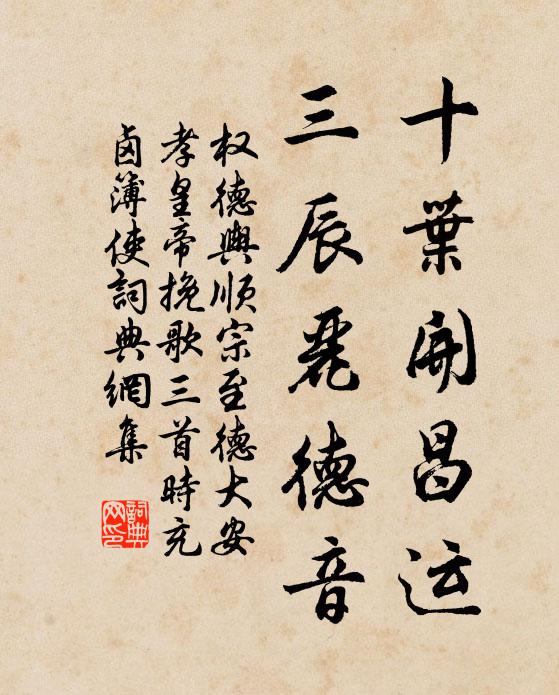 十葉開昌运
三辰麗德音
权德輿順宗至德大安
孝皇帝挽歌三首時充
鹵簿使詞典網集
詞典
网印